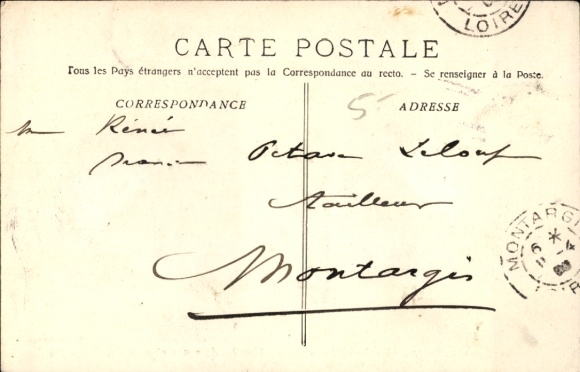 LOIRE
CARTE POSTALE
Tous les Pays étrangers n'acceptent pas la Correspondance au recto. - Se renseigner à la Poste.
CORRESPONDANCE
ADRESSE
5
Renée
Octave Leloup
Tailleur
Montargis
MONTARGIS